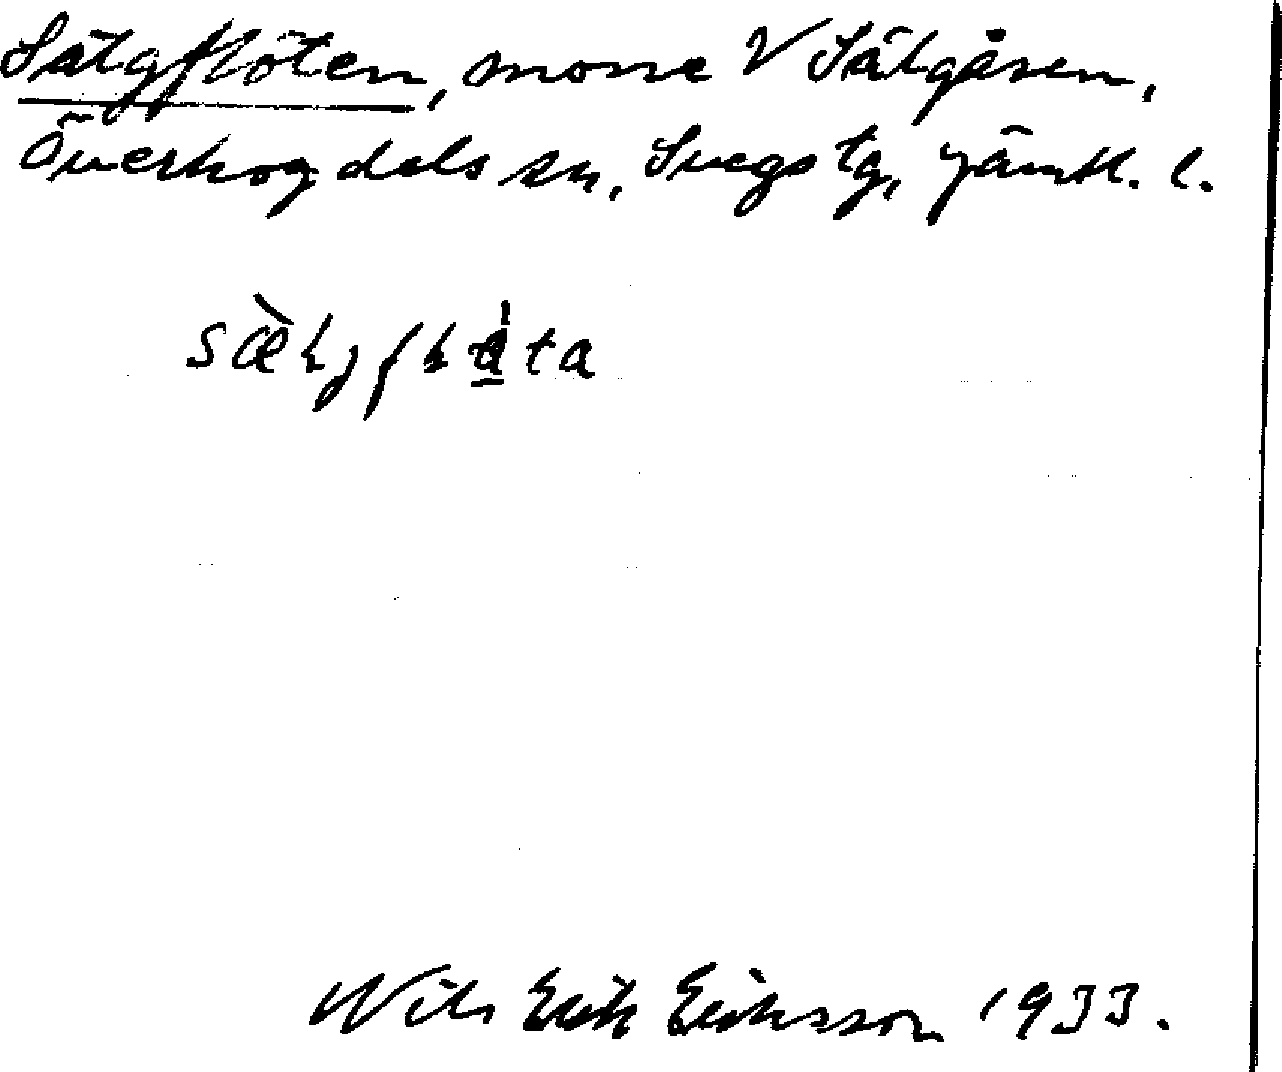 Sälgflöten, mosse V Sälgåsen,
Överhogdals sn, Svegs tg, Jämtl. l.
Nils Erik Eriksson 1933.